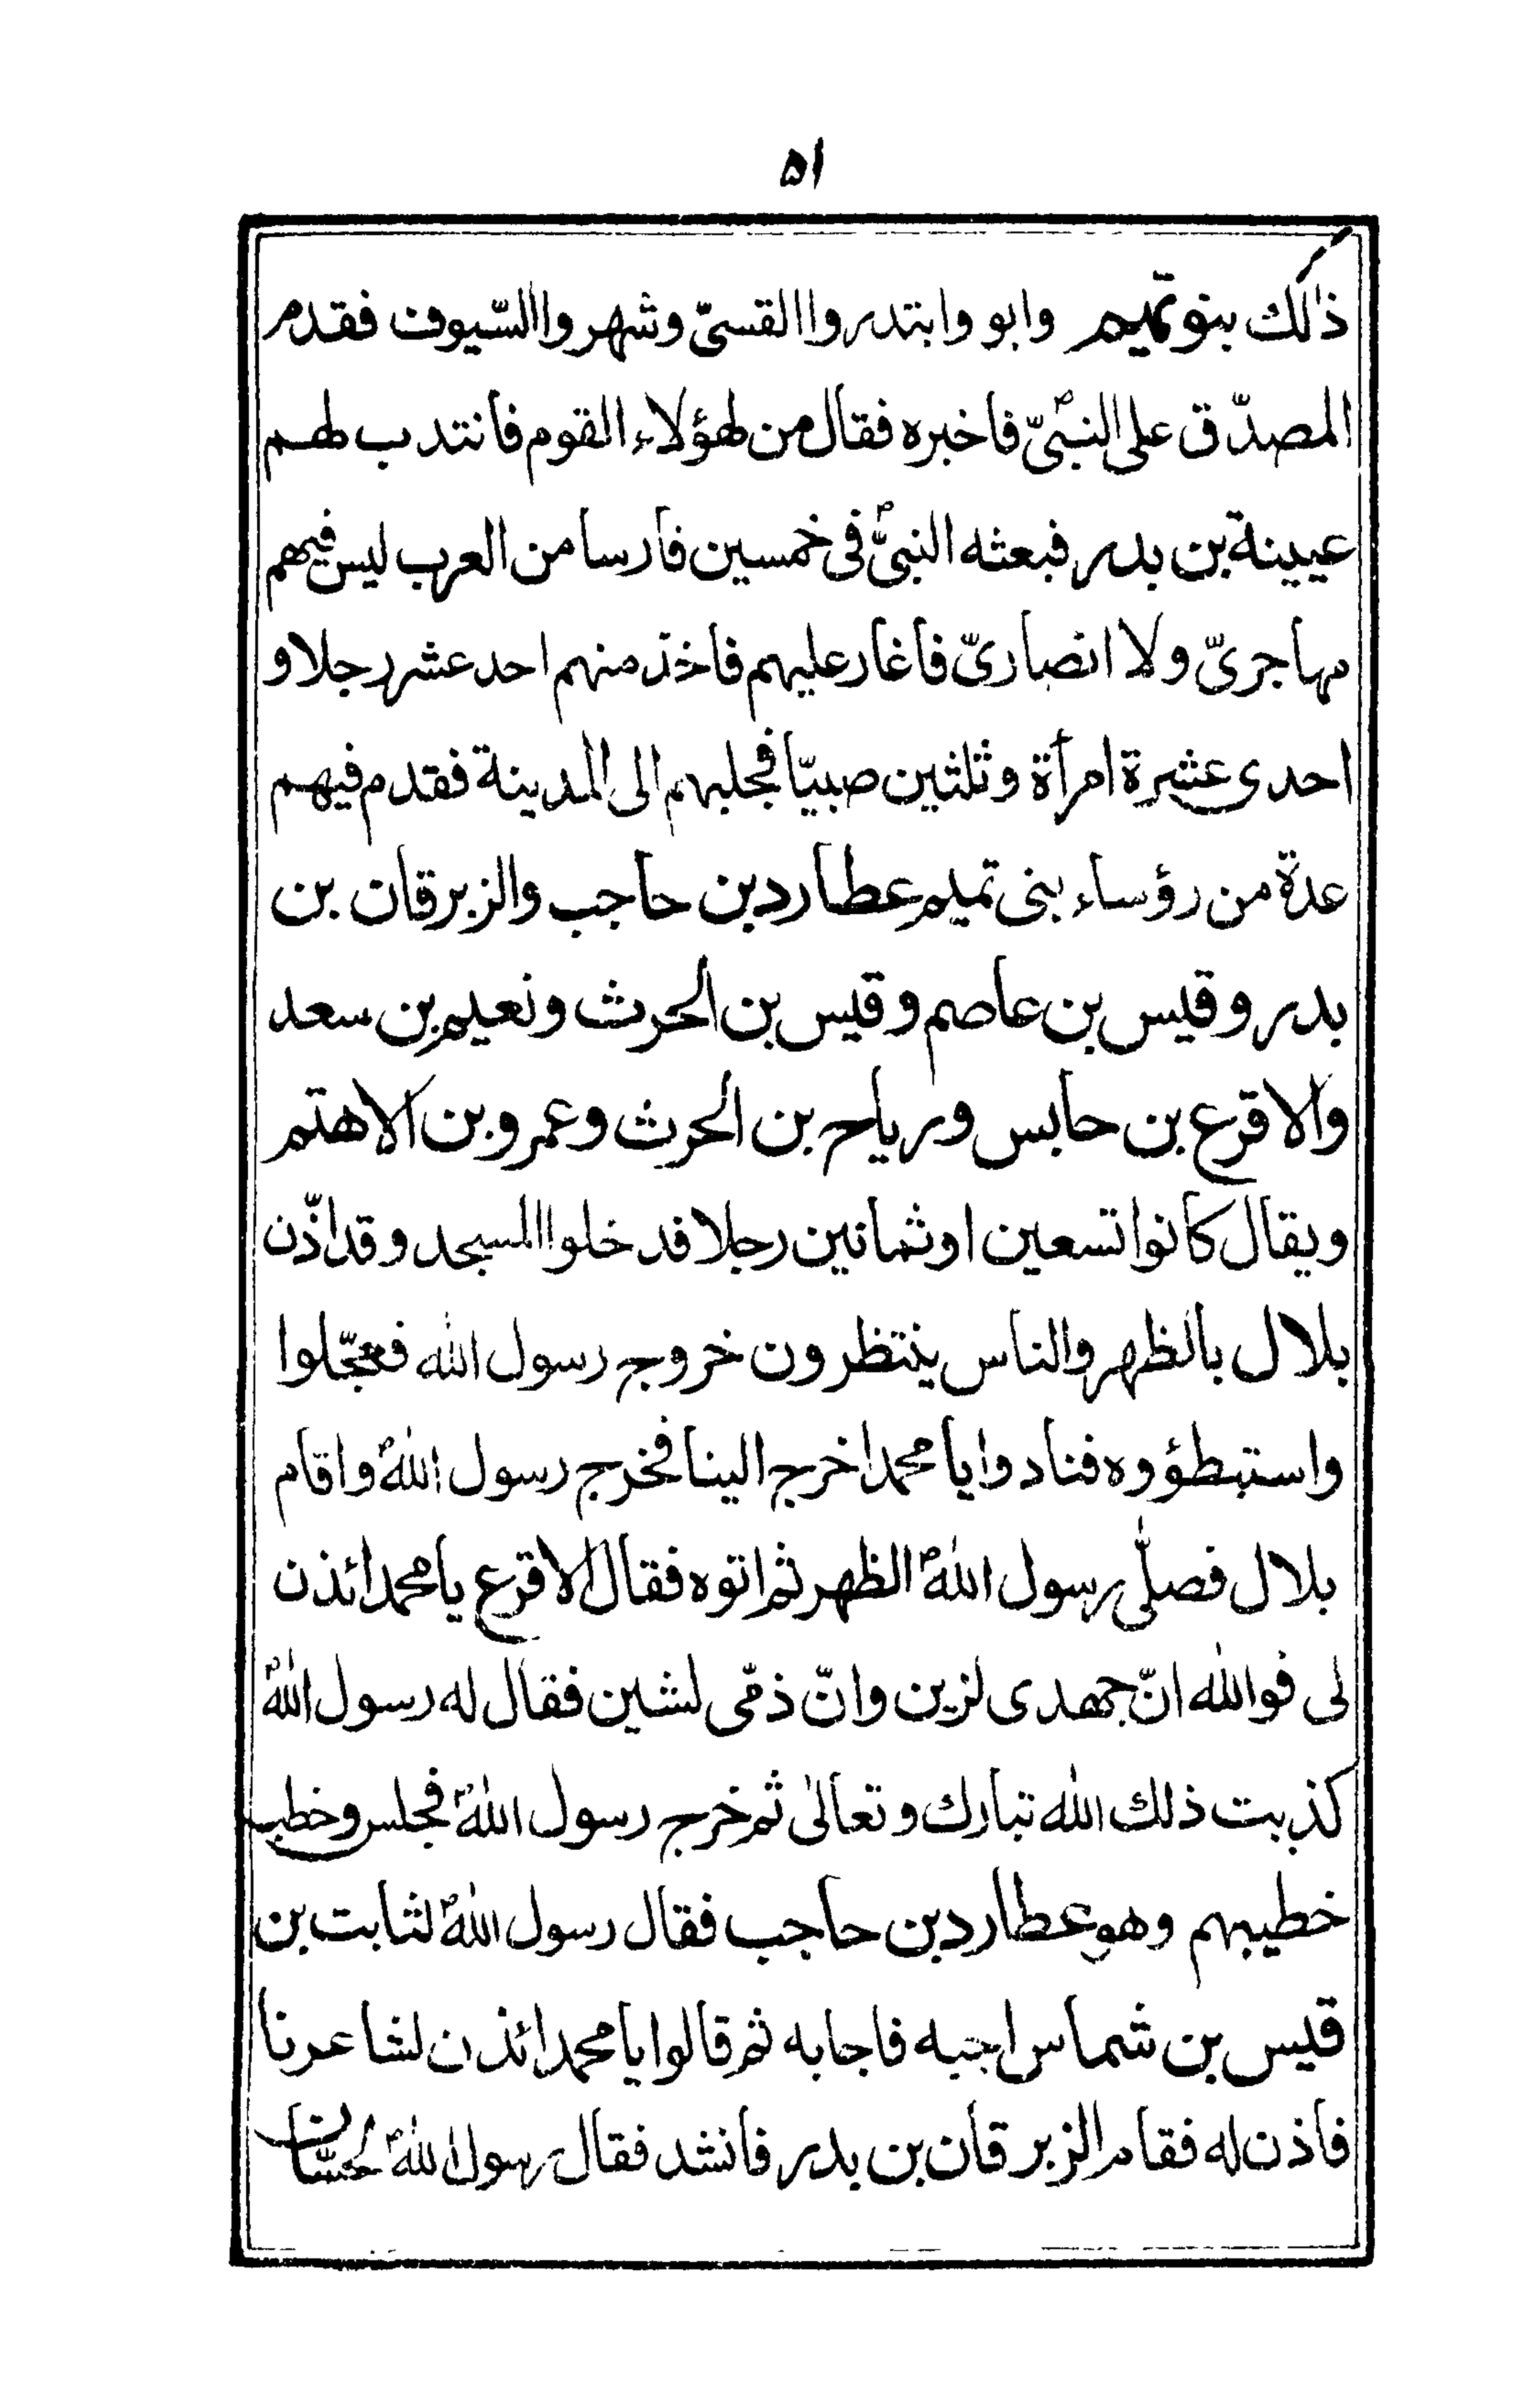 ٥١
ذلك بنو تميم وابو وابتدروا القسىّ وشهروا السّيوف فقدم
المصدّق على النبىّؐ فاخبره فقال من لهؤلاء القوم فانتدب لهم
عيينة بن بدر فبعثه النبىّؐ فى خمسين فارسا من العرب ليس فيهم
مهاجرىّ ولا انصارىّ فاغار عليهم فاخذ منهم احد عشر رجلا و
احدى عشرة امرأة وثلثين صبيّا فجلبهم الى المدينة فقدم فيهم
عدة من رؤساء بنى تميم عطارد بن حاجب والزبرقان بن
بدر وقيس بن عاصم وقيس بن الحرث ونعيم بن سعد
والاقرع بن حابس ورياح بن الحرث وعمرو بن الاهتم
ويقال كانوا تسعين او ثمانين رجلا فدخلوا المسجد وقد اذّن
بلال بالظهر والناس ينتظرون خروج رسول الله فعجّلوا
واستبطؤوه فنادوا يا محمد اخرج الينا فخرج رسول اللهؐ واقام
بلال فصلّى رسول اللهؐ الظهر ثم اتوه فقال الاقرع يا محمد ائذن
لى فوالله انّ جهدى لزين وانّ ذمّى لشين فقال له رسول اللهؐ
كذبت ذلك الله تبارك وتعالى ثم خرج رسول اللهؐ فجلس وخطب
خطيبهم وهو عطارد بن حاجب فقال رسول اللهؐ لثابت بن
قيس بن شماس اجبه فاجابه ثم قالوا يا محمد ائذن لشاعرنا
فاذن له فقام الزبرقان بن بدر فانشد فقال رسول اللهؐ لحسّان